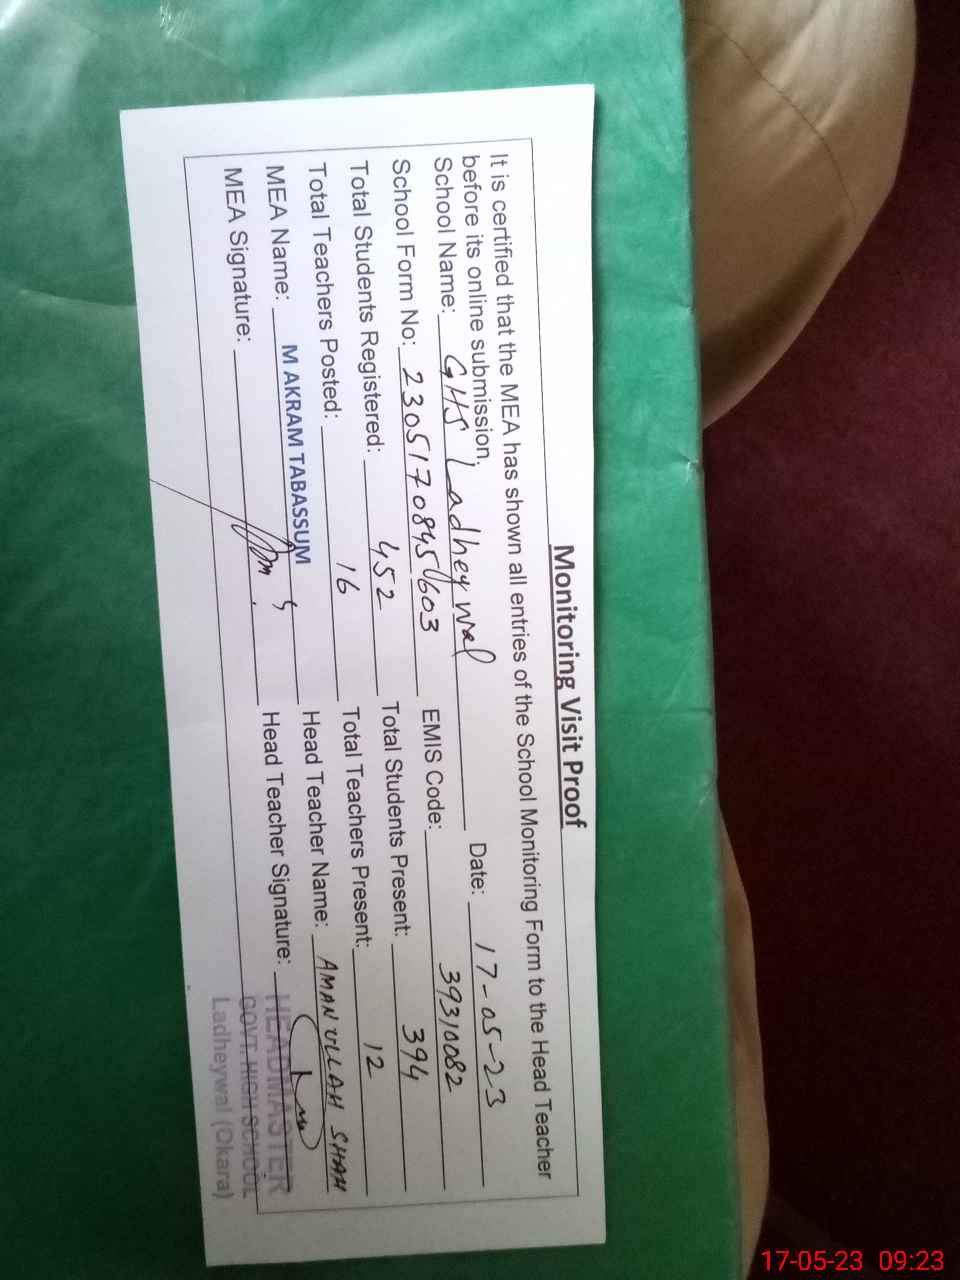 Monitoring Visit Proof
It is certified that the MEA has shown all entries of the School Monitoring Form to the Head Teacher
before its online submission.
School Name: GHS Ladheywal Date: 17-05-23
School Form No: 23051708451603 EMIS Code: 39310082
Total Students Registered: 452 Total Students Present: 394
Total Teachers Posted: 16 Total Teachers Present: 12
MEA Name: M AKRAM TABASSUM Head Teacher Name: AMANULLAH SHAH
MEA Signature: Head Teacher Signature:
HEADMASTER
GOVT. HIGH SCHOOL
Ladheywal (Okara)
17-05-23 09:23